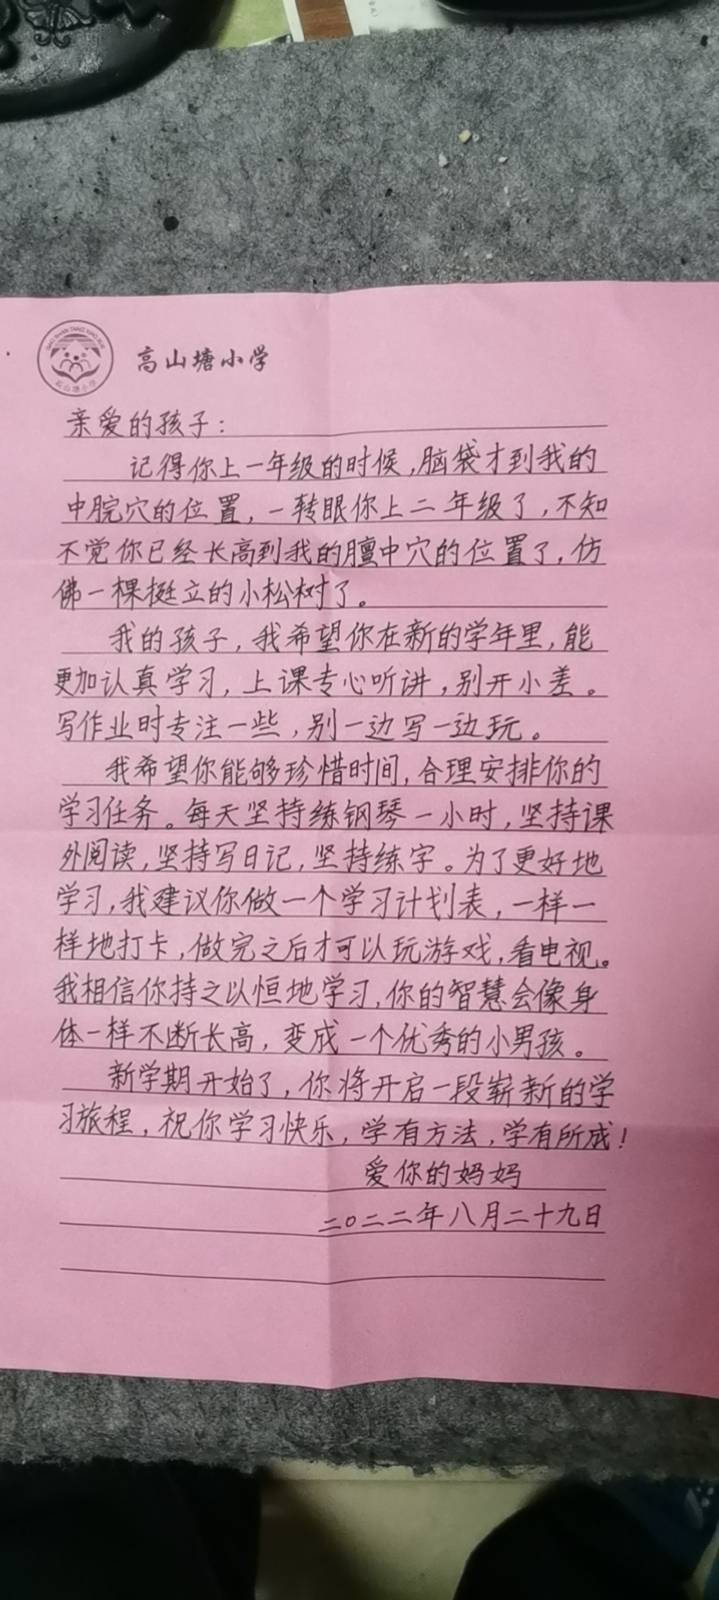 高山塘小学
亲爱的孩子：
记得你上一年级的时候，脑袋才到我的
中脘穴的位置，一转眼你上二年级了，不知
不觉你已经长高到我的膻中穴的位置了，仿
佛一棵挺立的小松树了。
我的孩子，我希望你在新的学年里，能
更加认真学习，上课专心听讲，别开小差。
写作业时专注一些，别一边写一边玩。
我希望你能够珍惜时间，合理安排你的
学习任务。每天坚持练钢琴一小时，坚持课
外阅读，坚持写日记，坚持练字。为了更好地
学习，我建议你做一个学习计划表，一样一
样地打卡，做完之后才可以玩游戏，看电视。
我相信你持之以恒地学习，你的智慧会像身
体一样不断长高，变成一个优秀的小男孩。
新学期开始了，你将开启一段崭新的学
习旅程，祝你学习快乐，学有方法，学有所成！
爱你的妈妈
二〇二二年八月二十九日